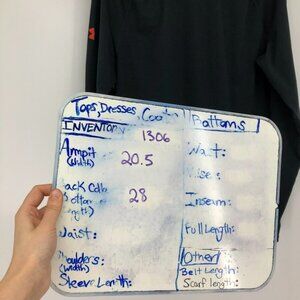 Tops, Dresses, Coats
INVENTORY
1306
Armpit
(width)
20.5
Back Colla
Bottom
ength)
28
Waist:
Shoulders:
(width)
Sleeve Length:
Bottoms
Waist:
Rise:
Inseam:
Full Length:
Other
Belt Length:
Scarf length: